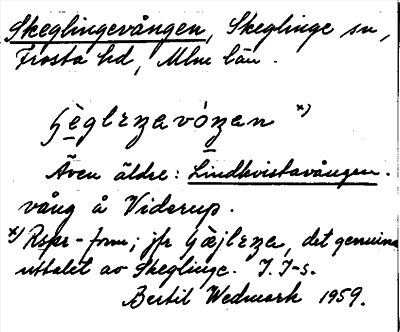 Skeglingevången, Skeglinge sn,
Frosta hd, Mlm län.
x)
Även äldre: Lindkvistavången.
vång å Viderup.
x) Rspr-form; jfr det genuina
uttalet av Skeglinge. I. I-s.
Bertil Wedmark 1959.